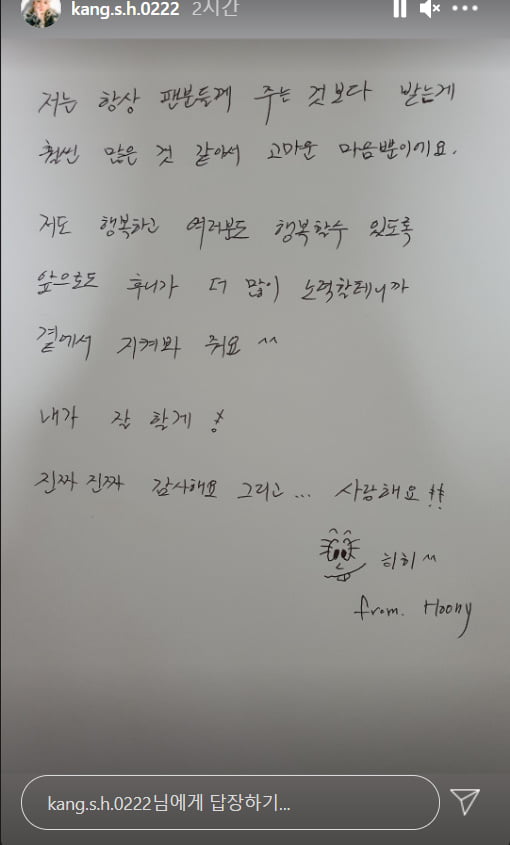 kang.s.h.0222 2시간
저는 항상 팬분들께 주는 것보다 받는게
훨씬 많은 것 같아서 고마운 마음뿐이에요.
저도 행복하고 여러분도 행복할수 있도록
앞으로도 후니가 더 많이 노력할테니까
곁에서 지켜봐 줘요 ^^
내가 잘 할게!
진짜 진짜 감사해요 그리고... 사랑해요!!
히히 ^^
from. Hoony
kang.s.h.0222님에게 답장하기...